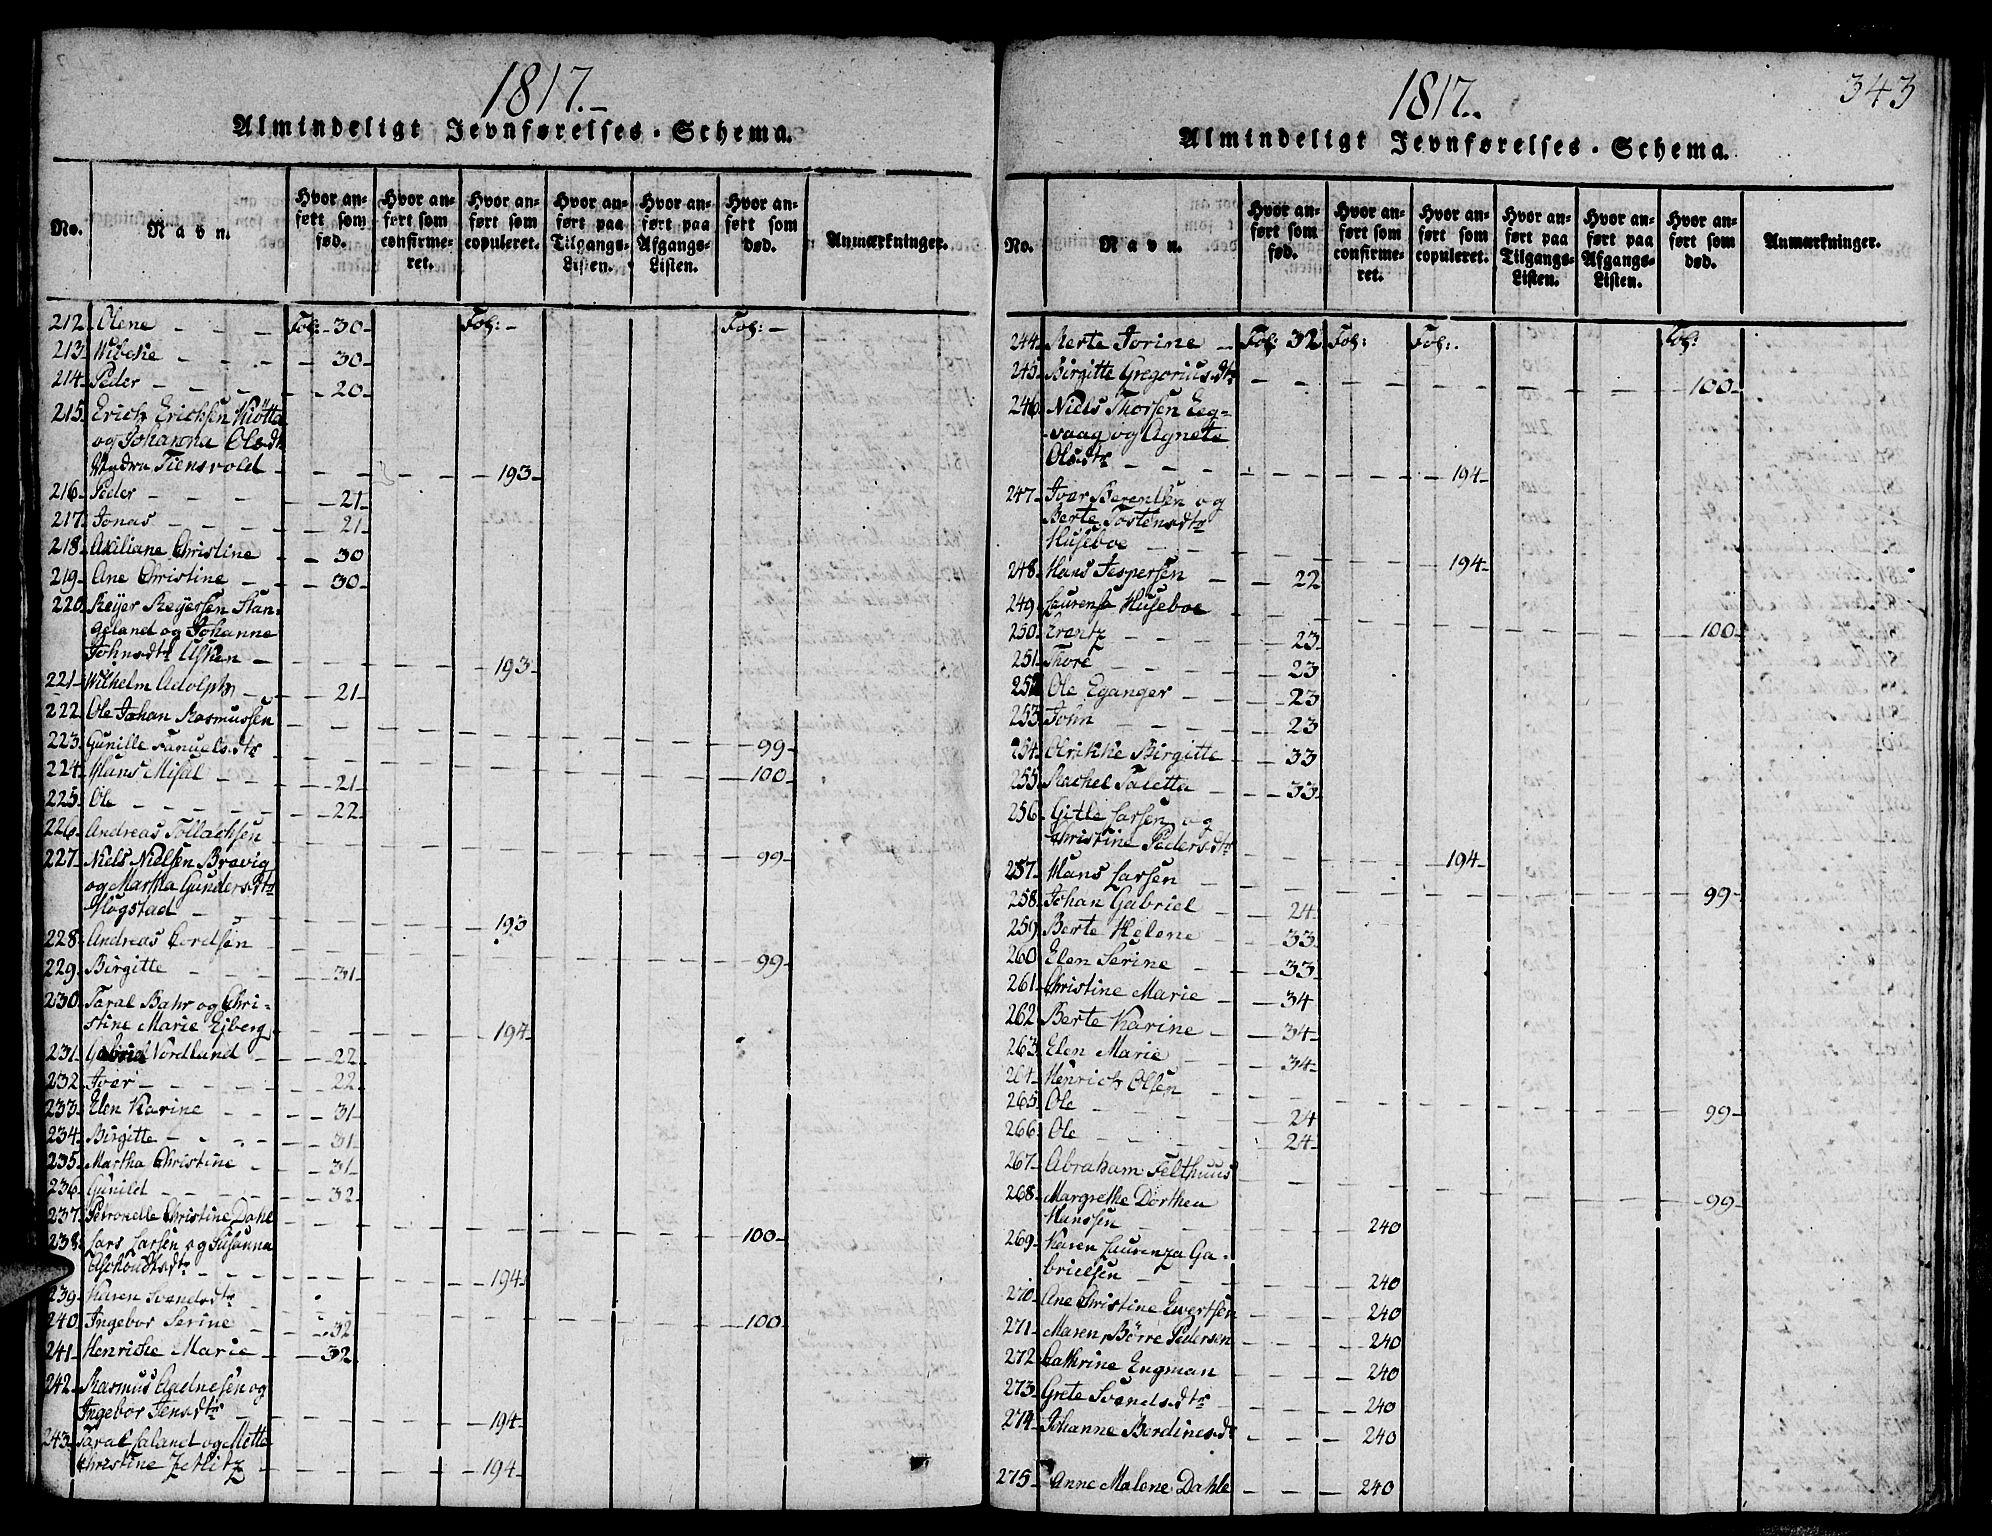 1817.–
Almindeligt Jevnførelses-Schema.
No.
Navn.
Hvor an-
ført som
fød.
Hvor an-
ført som
confirme-
ret.
Hvor an-
ført som
copuleret.
Hvor an-
ført paa
Tilgangs-
Listen.
Hvor an-
ført paa
Afgangs-
Listen.
Hvor an-
ført som
død.
Anmærkninger.
212. Olene – – – Fol: 30– Fol: – Fol: –
213. Wibeke – – – 30–
214. Peder – – – – 20–
215. Erich Erichsen Kiötta
og Johanna Olsdtr
Tiensvold – – – – 193–
216. Peder – – – – 21–
217. Jonas – – – – 21–
218. Axiliane Christine – – 30
219. Ane Christine – – – 30–
220. Reyer Reyersen Stan-
geland og Johanne
Johnsdtr Asken – – – – 193–
221. Wilhelm Adolph – – 21–
222. Ole Johan Rasmussen – – – – – – 99–
223. Gunille Samuelsdtr – – – – – – 100–
224. Hans Misal – – – 21–
225. Ole – – – – – 22–
226. Andreas Tollachsen – – – – – – 99–
227. Niels Nielsen Bravig
og Martha Gundersdtr
Hogstad – – – – 193
228. Andreas Cordsen – – – – – – 99–
229. Birgitte – – – – 31–
230. Taral Bahr og Chri-
stine Marie Ejberg – – – – 194–
231. Gabriel Nordlund – – 22–
232. Iver – – – – – 22–
233. Elen Karine – – – 31–
234. Birgitte – – – – 31–
235. Martha Christine – – 31–
236. Gunild – – – – 32–
237. Petronelle Christine Dahl – – – – – – 100–
238. Lars Larsen og Susanna
– – – – – 194–
239. Karen Svendsdtr – – – – – – 100–
240. Ingebor Serine – – 32–
241. Henrike Marie – – 32–
242. Rasmus Aadnesen og
Ingebor Jensdtr – – – – 194–
243. Taral Saland og Mette
Christine Zetlitz – – – – 194–
1817..
343
Almindeligt Jevnførelses-Schema.
No.
Navn.
Hvor an-
ført som
fød.
Hvor an-
ført som
confirme-
ret.
Hvor an-
ført som
copuleret.
Hvor an-
ført paa
Tilgangs-
Listen.
Hvor an-
ført paa
Afgangs-
Listen.
Hvor an-
ført som
død.
Anmærkninger.
244. Berte Torine – Fol: 32 Fol: Fol: Fol:
245. Birgitte Gregoriusdtr – – – – – – 100–
246. Niels Thorsen Eeg-
vaag og Agnete
Olsdtr – – – – – 194–
247. Iver Berentsen og
Berte Tostensdtr
Huseboe – – – – – 194–
248. Hans Jespersen – – 22–
249. Laurense Huseboe – – – – – – 100–
250. Frantz – – – – 23–
251. Thore – – – – 23
252. Ole Eganger – – 23–
253. John – – – – 23
254. Olrikke Birgitte – – 33
255. Rachel Taletta – – 33–
256. Gitle Larsen og
Christine Pedersdtr – – – – 194–
257. Hans Larsen – – – – – – 99–
258. Johan Gabriel – – 24–
259. Berte Helene – – 33–
260. Elen Serine – – 33–
261. Christine Marie – – 34
262. Berte Karine – – 34–
263. Elen Marie – – 34–
264. Henrich Olsen – – – – – – 99–
265. Ole – – – – 24
266. Ole – – – – 24–
267. Abraham Felthuus – – – – – – 99–
268. Margrethe Dorthea
Hanssen – – – – 240
269. Karen Laurenza Ga-
brielsen – – – – 240
270. Ane Christine Evertsen – – – 240
271. Maren Börre Pedersen – – – 240
272. Cathrine Engman – – – 240
273. Grete Svendsdtr – – – 240
274. Johanne Berdinesdt – – – 240
275. Anne Malene Dahle – – – 240